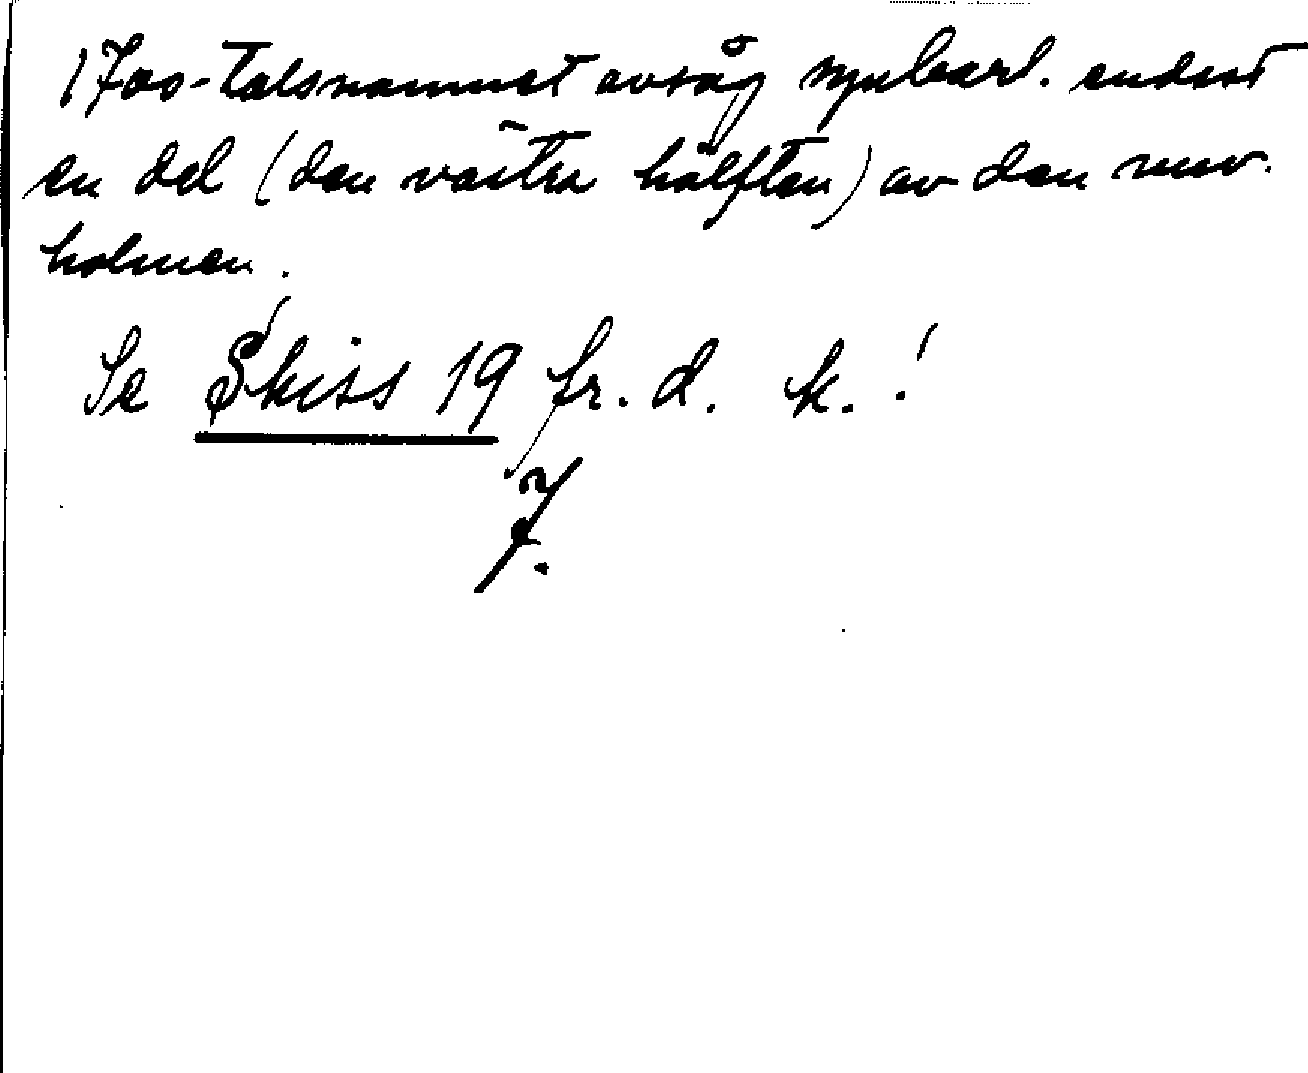 1700-talsnamnet avsåg synbarl. endast
en del (den västra hälften) av den nuv.
holmen.
Se Skiss 19 fr. d. k.!